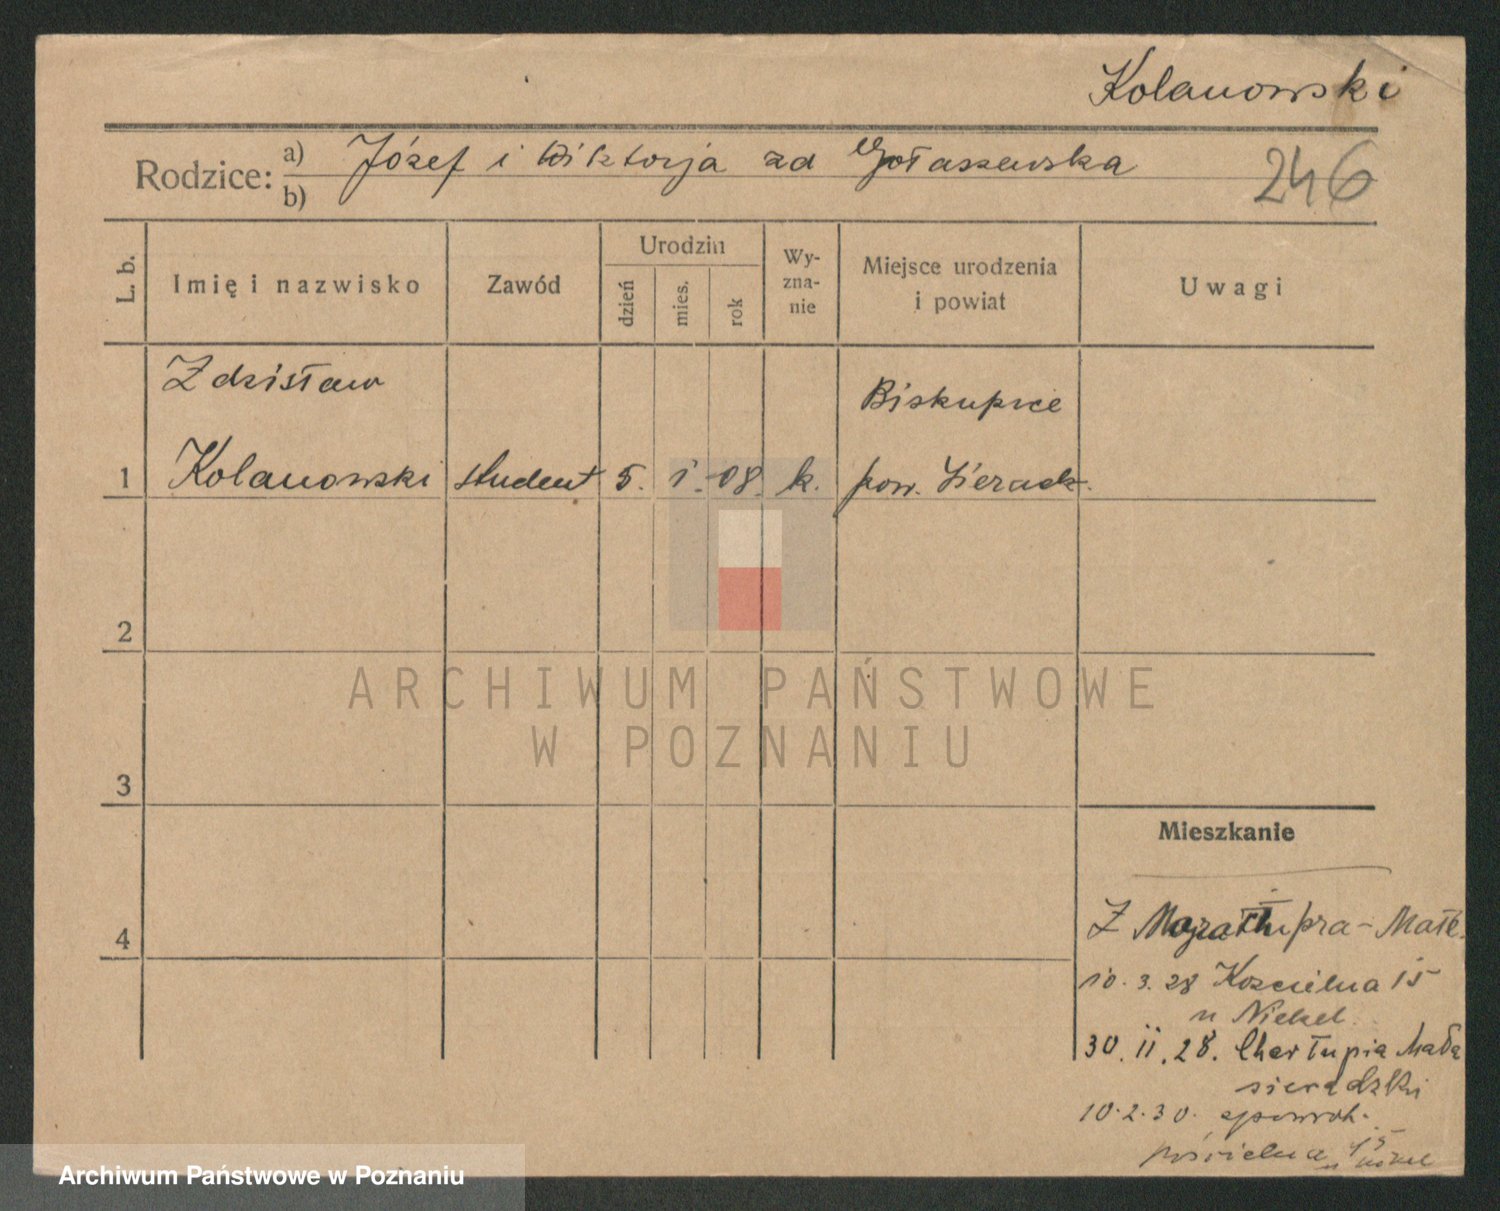 Kolanowski
Rodzice: a) Józef i Wiktorja zd Gołaszewska
b)
246
L. b.
Imię i nazwisko
Zawód
Urodzin
dzień
mies.
rok
Wy-
zna-
nie
Miejsce urodzenia
i powiat
Uwagi
Zdzisław
Biskupice
1 Kolanowski student 5. i. 08. k. pow. Sieradz.
2
3
4
ARCHIWUM PAŃSTWOWE
W POZNANIU
Mieszkanie
Z
10.3.28 Kościelna 15
u Nickel
30.ii.28. Charłupia Mała
sieradzki
10.2.30. spowrot.
15
Archiwum Państwowe w Poznaniu